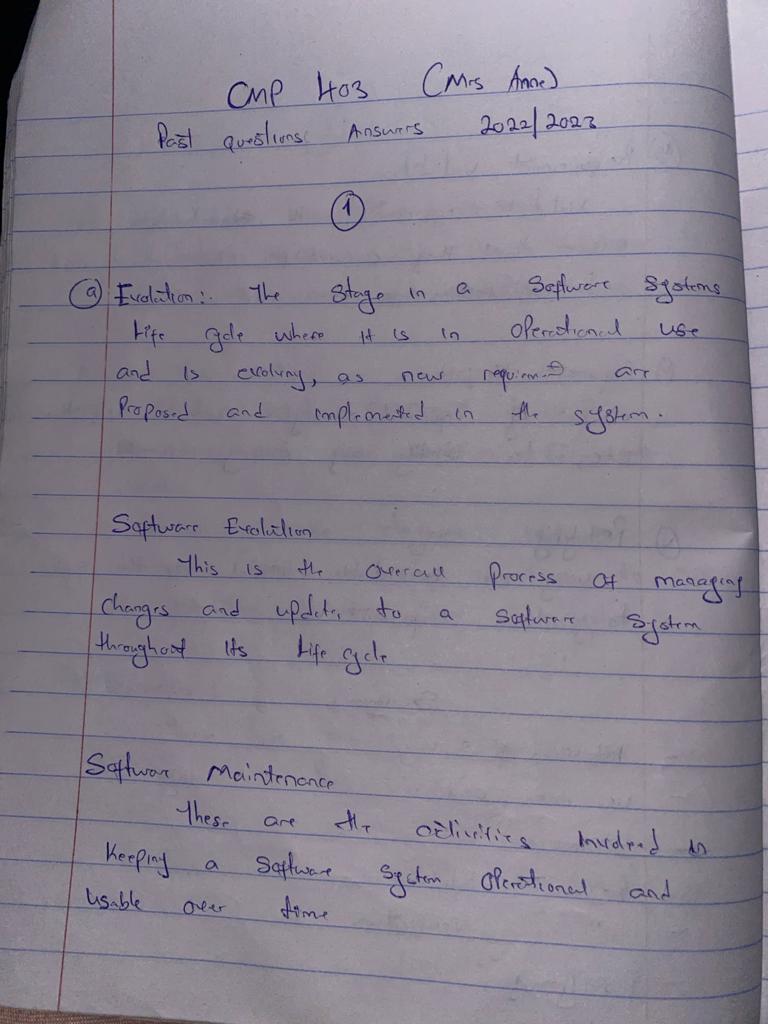 CMP 403 (Mrs Anne)
Past questions Answers 2022/2023
1
(a) Evolution:. The Stage in a Software Systems
Life cycle where it is in Operational use
and is evolving, as new are
Proposed and implemented in the system.
Software Evolution
This is the overall Process of managing
changes and update, to a Software System
throughout Its Life cycle
Softwar Maintenance
These are the activities involved in
Keeping a Software System Operational and
Usable over time